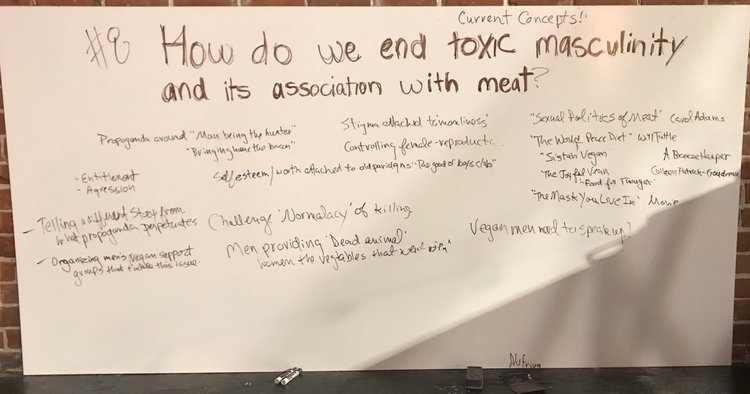 Current Concepts!
#8 How do we end toxic masculinity
and its association with meat?
Propaganda around "Man being the hunter"
- "Bringing home the bacon"
- Entitlement
- Agression
Stigma attached to 'manliness'
Controlling female-reproducti
Self esteem/worth attached to old paridigms "The good ol boys club"
"Sexual Politics of Meat" Carol Adams
"The World Peace Diet" Will Tuttle
"Sistah Vegan" A Breeze Harper
"The Joyful Vegan Colleen Patrick-Goudreau
"Food for Thought"
"The Mask You Live In" Movie
- Telling a different story from
what propaganda perpetuates
- Organizing men's vegan support
groups that tackle this issue.
Challenge 'Normalacy' of killing
Men providing 'Dead animal'
women the vegtables that went with"
Vegan men need to speak up!